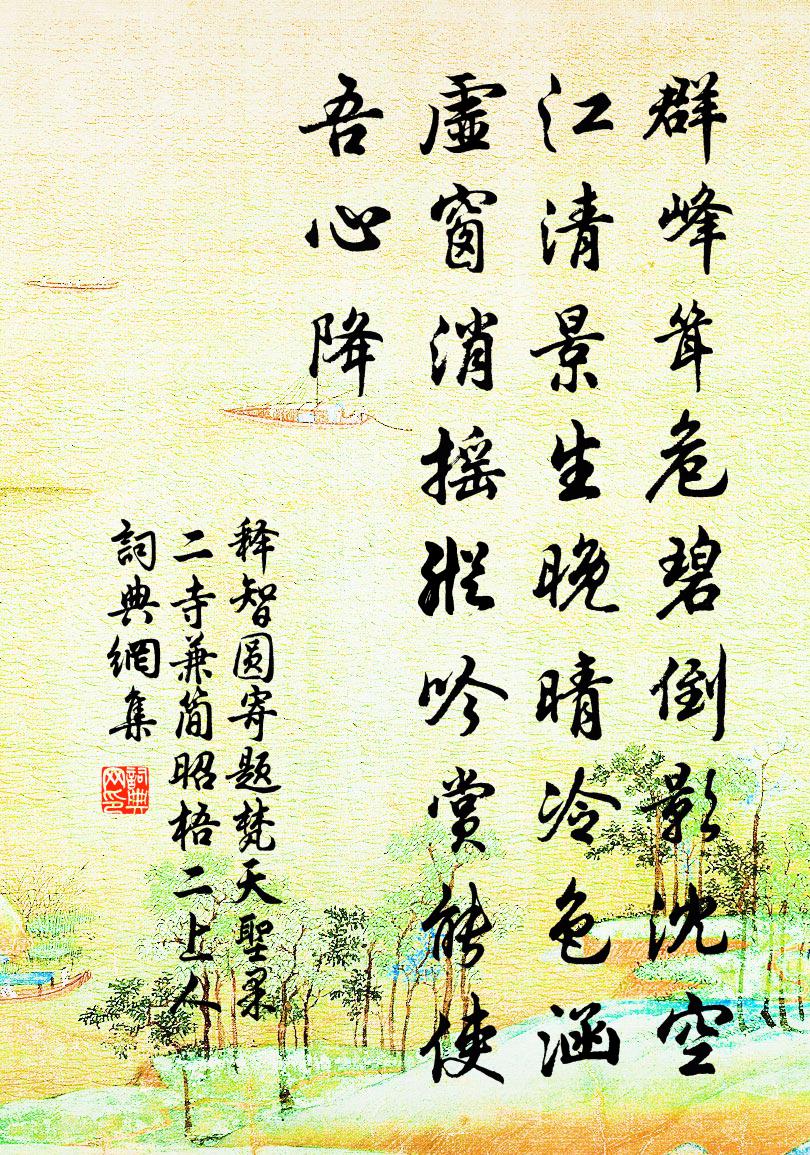 群峰耸危碧倒影沈空
江清景生晚晴冷色涵
虛窗消搖縱吟赏能使
吾心降
释智圆寄题梵天聖果
二寺兼简昭梧二上人
詞典網集
詞典网印